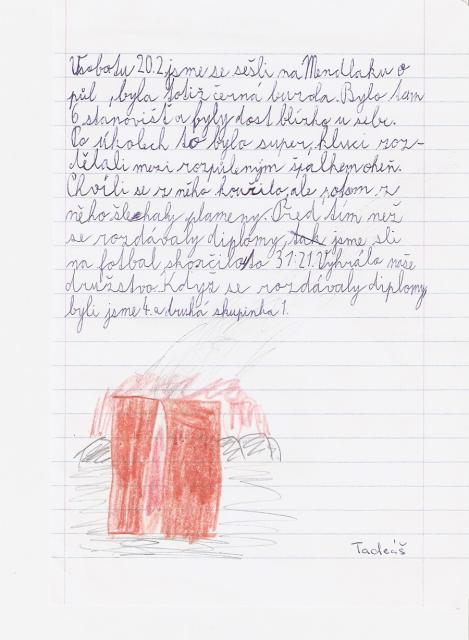 V sobotu 20.2. jsme se sešli na Mendlaku o
půl , byla totiž černá burda. Bylo tam
6 stanovišť a byly dost blízko u sebe.
Po úkolech to bylo super, kluci roz-
dělali mezi rozpůleným špalkem oheň.
Chvíli se z něho kouřilo, ale potom z
něho šlehaly plameny. Před tím než
se rozdávaly diplomy, tak jsme šli
na fotbal, skončilo to 31:21. Vyhrálo naše
družstvo. Když se rozdávaly diplomy
byli jsme 4. a druhá skupinka 1.
Tadeáš